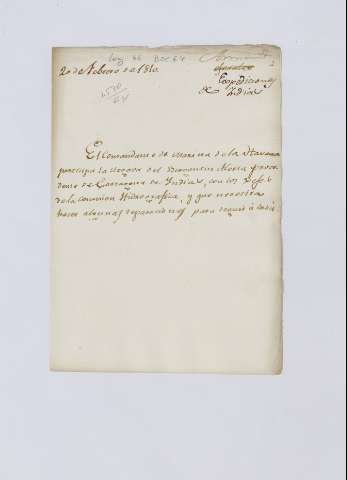 2 de Febrero de 1810.
Expediciones
de Indias
El Comandante de Marina de la Havana
participa la llegada del Bergantin Alerta proce
dente de Cartagena de Indias, con los Gefes
de la comision Hidrografica, y que necesita
hacer algunas reparaciones para seguir à Cadiz.